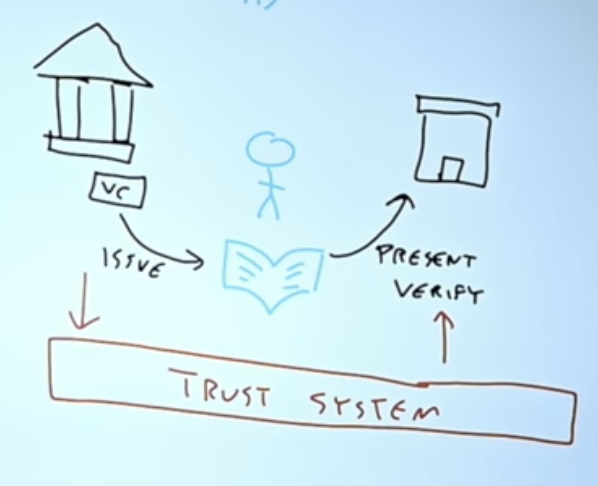 VC
ISSUE
PRESENT
VERIFY
TRUST SYSTEM